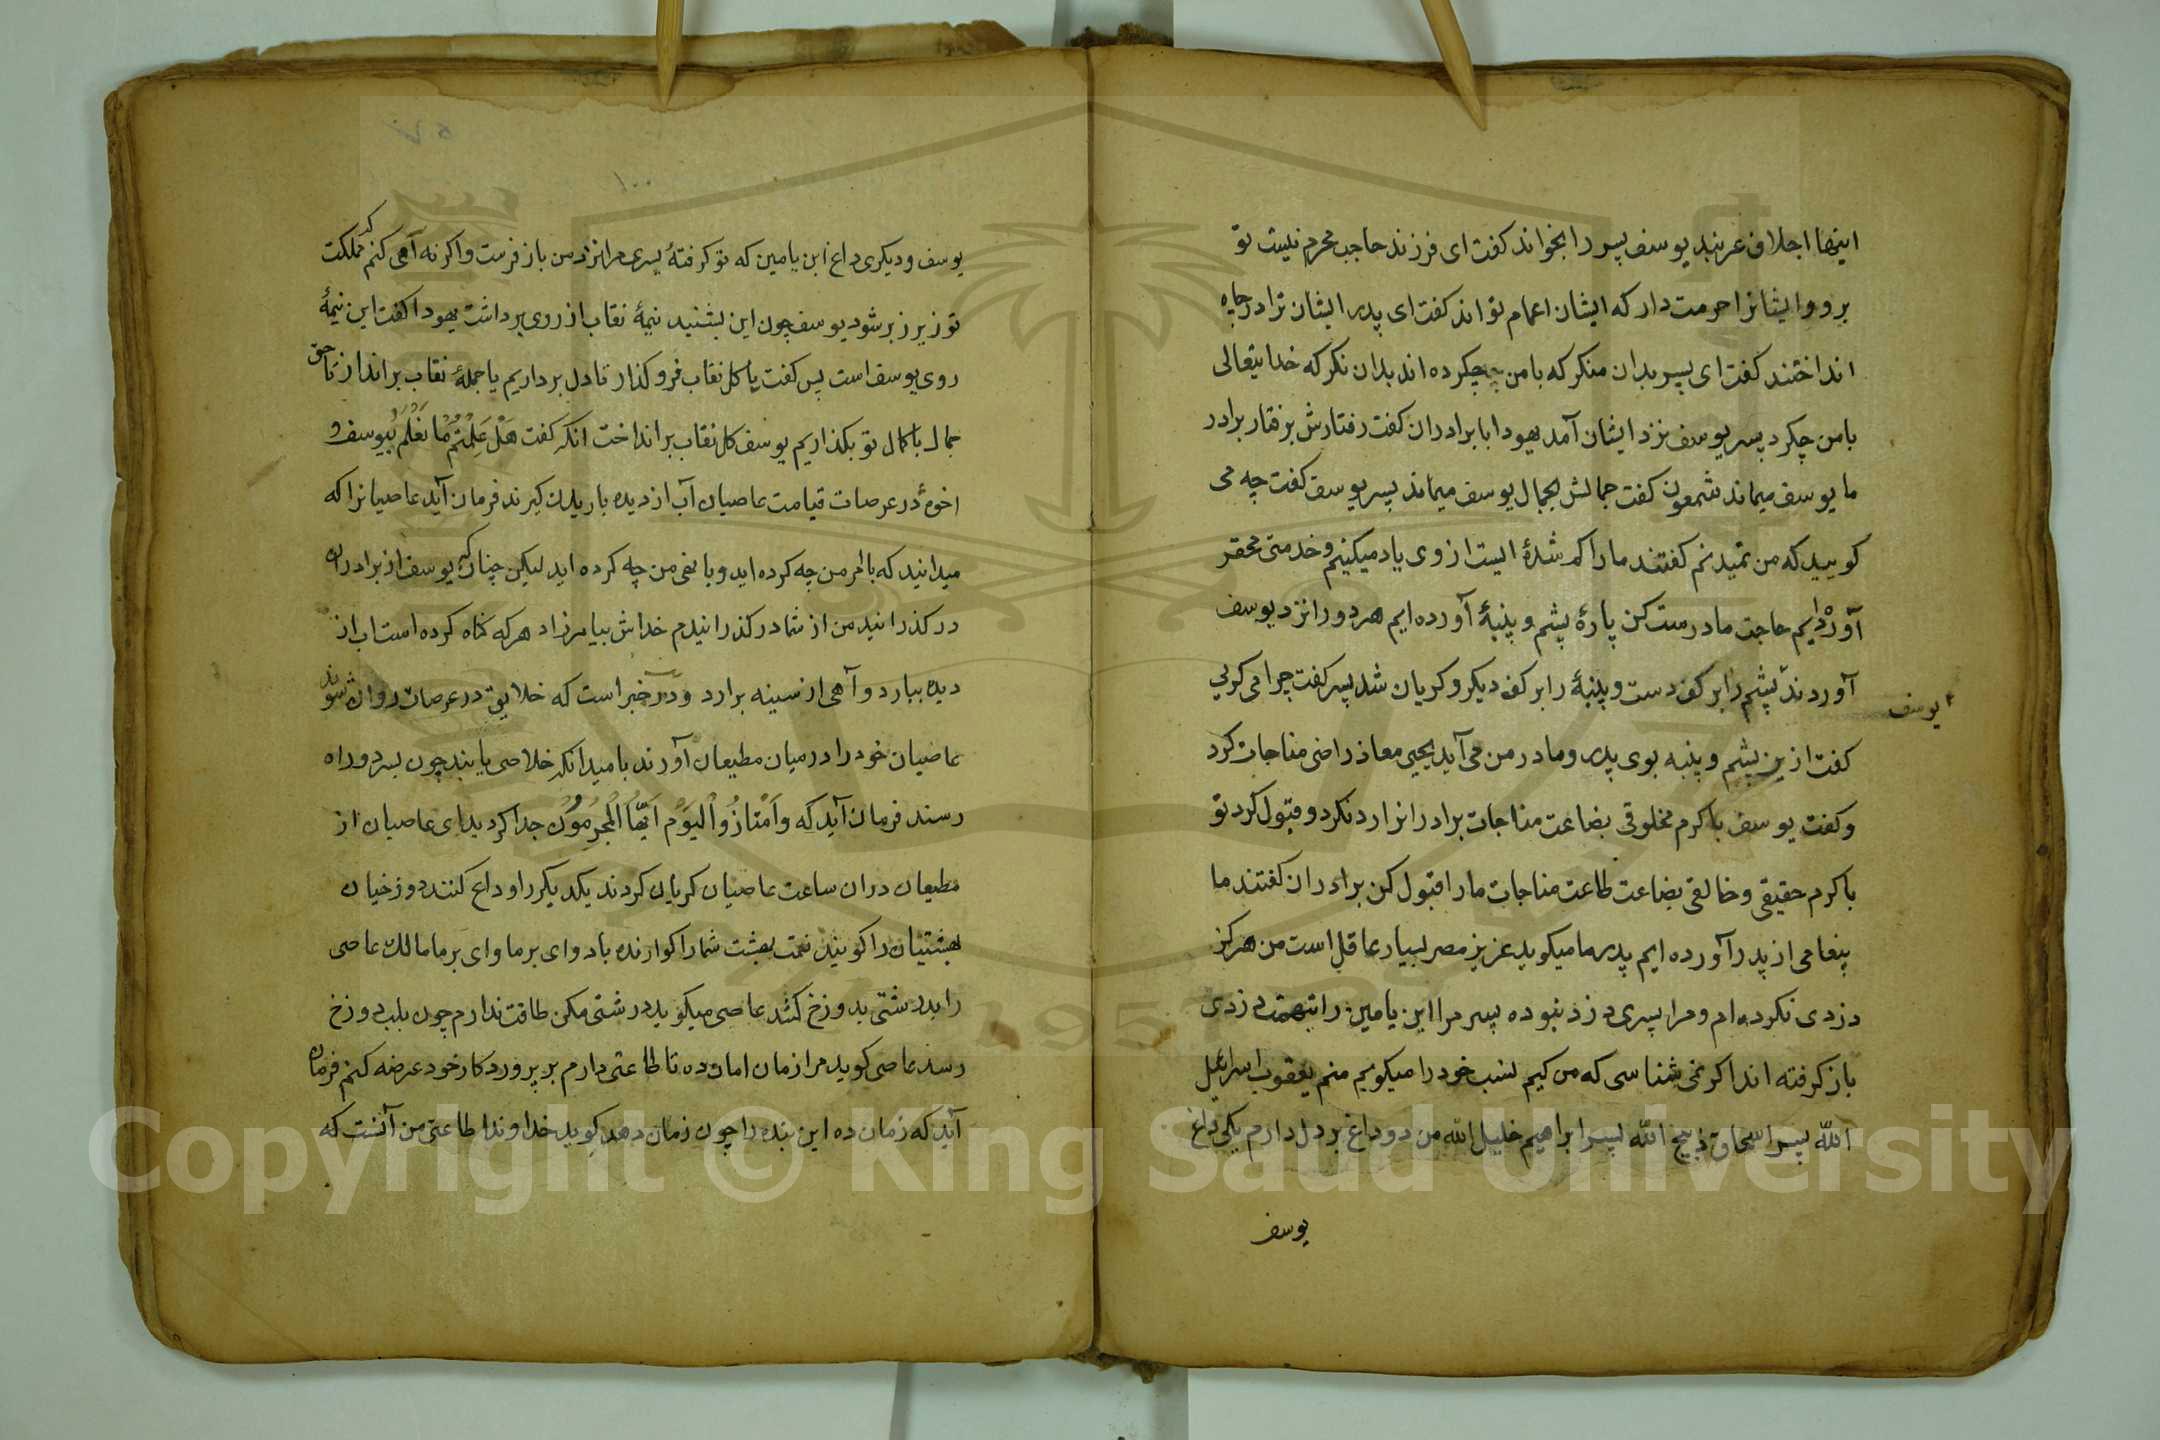 اینها اجلاف عربند یوسف پسر را بخواند کفت ای فرزند حاجب محرم نیست تو
برو و ایشانرا حرمت دار که ایشان اعمام تو اند کفت ای پدر ایشان ترا در چاه
انداختند کفت ای پسر بدان منکر که با من چه کرده اند بدان نکر که خدایتعالی
با من چکرد پسر یوسف نزد ایشان آمد یهودا با برادران کفت رفتارش برفتار برادر
ما یوسف میماند شمعون کفت جمالش بجمال یوسف میماند پسر یوسف کفت چه می
کویید که من کفتند ما را کم شدهٔ است از وی یاد میکنیم و خدمتی محقر
آورده ایم حاجت ما درست کن پارهٔ پشم و پنبهٔ آورده ایم هر دو را نزد یوسف
آوردند پشم را بر کف دست و پنبهٔ را بر کف دیکر و کریان شد پسر کفت چرا می کریی
یوسف
کفت ازین پشم و پنبه بوی پدر و مادر من می آید یحیی معاذ راضی مناجات کرد
و کفت یوسف با کرم مخلوقی بضاعت مناجات برادرانرا رد نکرد و قبول کرد تو
با کرم حقیقی و خالقی بضاعت طاعت مناجات ما را قبول کن برادران کفتند ما
پیغامی از پدر آورده ایم پدر ما میکوید عزیز مصر بسیار عاقل است من هرکز
دزدی نکرده ام و مرا پسری دزد نبوده پسر مرا ابن یامین را بتهمت دزدی
باز کرفته اند اکر نمی شناسی که من کیم نسب خود را میکویم منم یعقوب اسرائیل
الله پسر اسحاق ذبیح الله پسر ابراهیم خلیل الله من دو داغ بر دل دارم یکی داغ
یوسف
۱۰۰
یوسف و دیکری داغ ابن یامین که تو کرفتهٔ پسری مرا نزد من باز فرست و اکر نه آهی کنم که مملکت
تو زیر زبر شود یوسف چون این بشنید نیمهٔ نقاب از روی برداشت یهودا کفت این نیمهٔ
روی یوسف است پس کفت یا کل نقاب فرو کذار تا دل برداریم یا جملهٔ نقاب برانداز تا حق
جمال باکمال تو بکذاریم یوسف کل نقاب برانداخت انکه کفت هَلْ عَلِمْتُمْ مَا فَعَلْتُمْ بِیوسف و
اخوهٔ در عرصات قیامت عاصیان آب از دیده باریدن کیرند فرمان آید عاصیانرا که
میدانید که با امر من چه کرده اید و با نهی من چه کرده اید لیکن چنانکه یوسف از برادران
در کذرانید من از شما در کذرانیدم خداش بیامرزاد هر که کناه کرده است اب از
دیده ببارد و آهی از سینه برارد و در خبر است که خلایق در عرصات روان شوند
عاصیان خود را در میان مطیعان آورند بامید انکه خلاصی یابند چون بسر دو راه
رسند فرمان آید که وَامْتَازُوا الْیَوْمَ اَیُّهَا الْمُجْرِمُونَ جدا کردید ای عاصیان از
مطیعان دران ساعت عاصیان کریان کردند یکدیکر را وداع کنند دوزخیان
بهشتیان را کویند نعمت بهشت شما را کوارنده باد وای بر ما وای بر ما مالک عاصی
را بدرشتی بدوزخ کشد عاصی میکوید درشتی مکن طاقت ندارم چون بلب دوزخ
رسد عاصی کوید مرا زمان امان ده تا طاعتی دارم بر پروردکار خود عرضه کنم فرمان
آید که زمان ده این بنده را چون زمان دهد کوید خداوندا طاعتی من آنست که
Copyright © King Saud University
1957